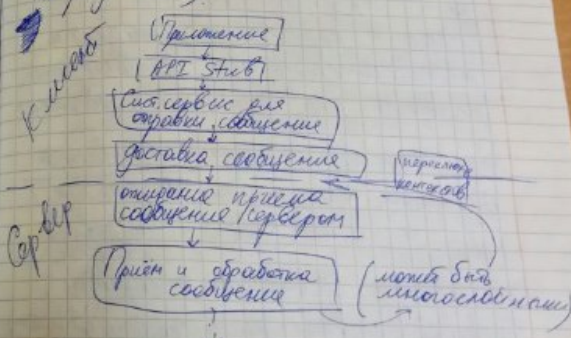 Клиент
Приложение
API Stub
Сист. сервис для
отправки сообщение
доставка сообщение
контекстов
ожидание приема
сообщения сервером
Сервер
Приём и обработка
сообщение
(может быть
многослойными)